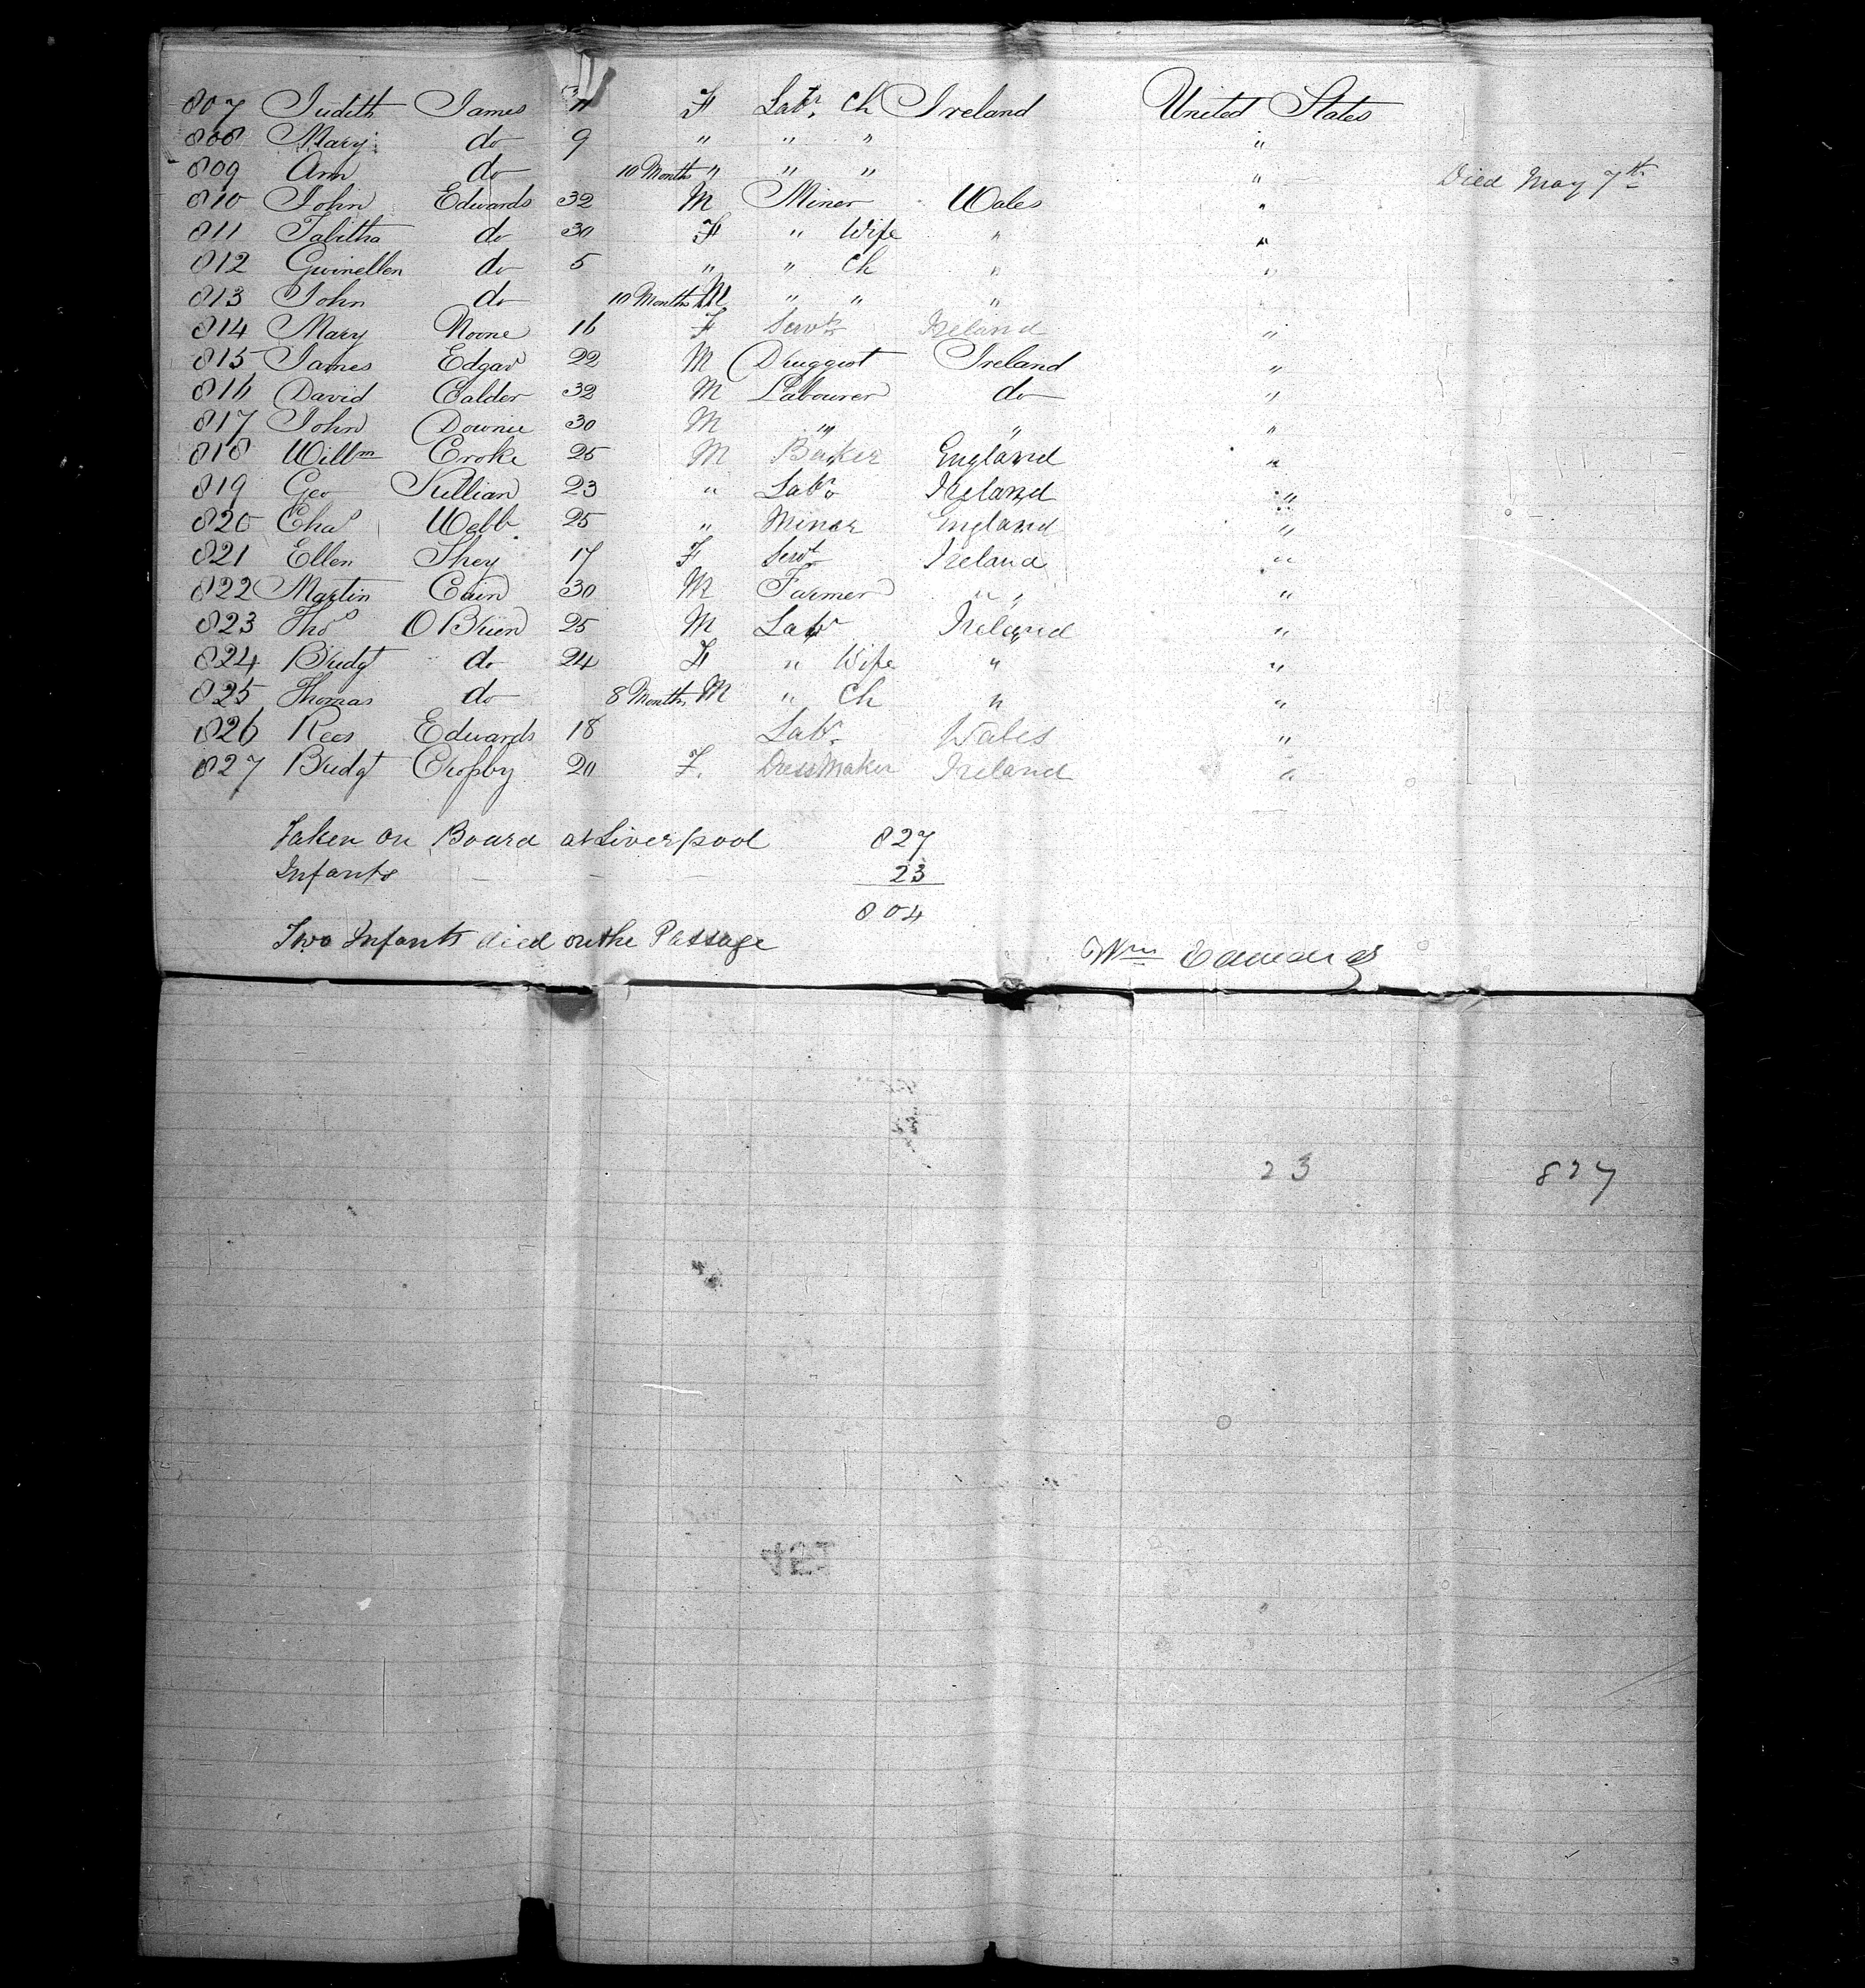 807 Judith James 11 F Labr. Ch Ireland United States
808 Mary do 9 " " " "
809 Ann do 10 Months " " " " Died May 7th
810 John Edwards 32 M Miner Wales "
811 Tabitha do 30 F " Wife " "
812 Gwinellen do 5 " " Ch " "
813 John do 10 Months M " " "
814 Mary Noone 16 F Servt Ireland "
815 James Edgar 22 M Druggist Ireland "
816 David Calder 32 M Labourer do "
817 John Downie 30 M " " "
818 Willm Croke 25 M Baker England "
819 Geo Sullian 23 " Labr Ireland "
820 Chas Webb 25 " Miner England "
821 Ellen Shey 17 F Servt Ireland "
822 Martin Cain 30 M Farmer " "
823 Thos O Brien 25 M Labr Ireland "
824 Bridgt do 24 F " Wife " "
825 Thomas do 8 Months M " Ch " "
826 Rees Edwards 18 Labr. Wales "
827 Bridgt Crosby 20 F. Dress Maker Ireland "
Taken on Board at Liverpool 827
Infants 23
804
Two Infants died on the Passage
Wm Edwards
23 827